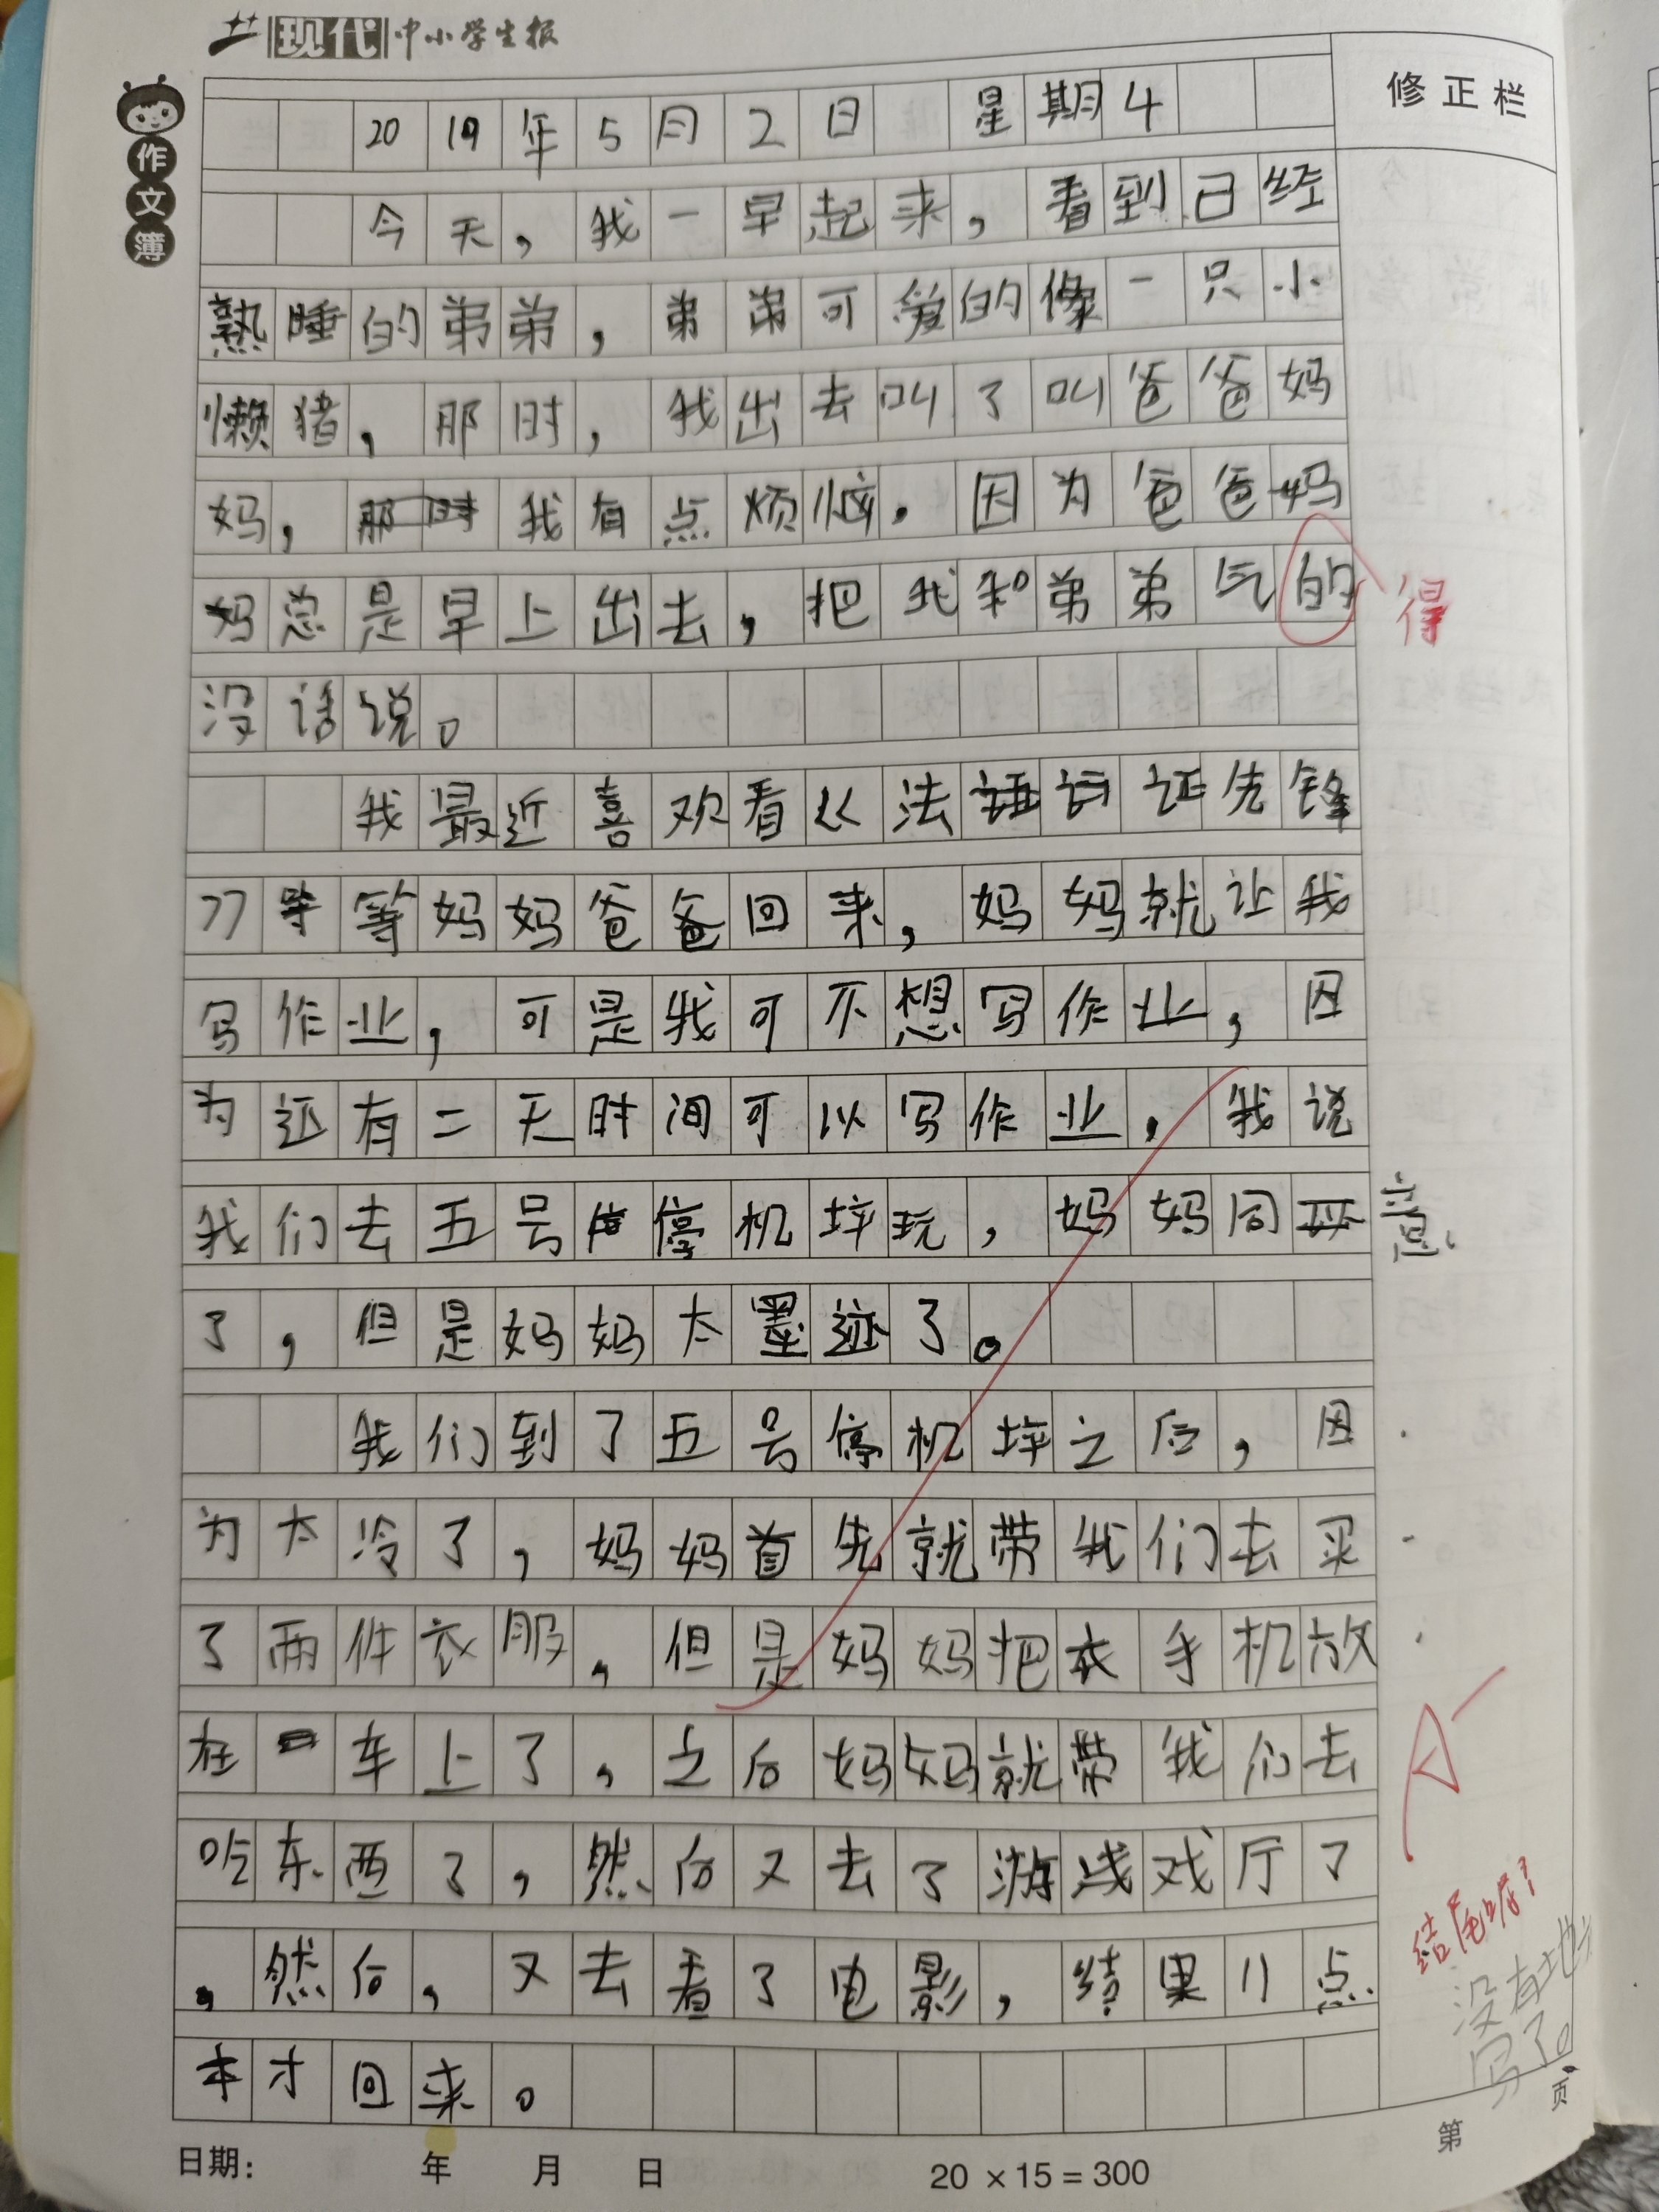 现代中小学生报
作文簿
修正栏
2019年5月2日 星期4
今天，我一早起来，看到已经
熟睡的弟弟，弟弟可爱的像一只小
懒猪，那时，我出去叫了叫爸爸妈
妈，我有点烦恼，因为爸爸妈
妈总是早上出去，把我和弟弟气的
得
没话说。
我最近喜欢看《法证先锋
》等妈妈爸爸回来，妈妈就让我
写作业，可是我可不想写作业，因
为还有二天时间可以写作业，我说
我们去五号停机坪玩，妈妈同意
了，但是妈妈太墨迹了。
我们到了五号停机坪之后，因
为太冷了，妈妈首先就带我们去买
了两件衣服，但是妈妈把衣手机放
在车上了，之后妈妈就带我们去
吃东西了，然后又去了游戏厅了
，然后，又去看了电影，结果11点
才回来。
A-
结尾呢？
没有地方
写了。
第 页
日期： 年 月 日
20×15=300